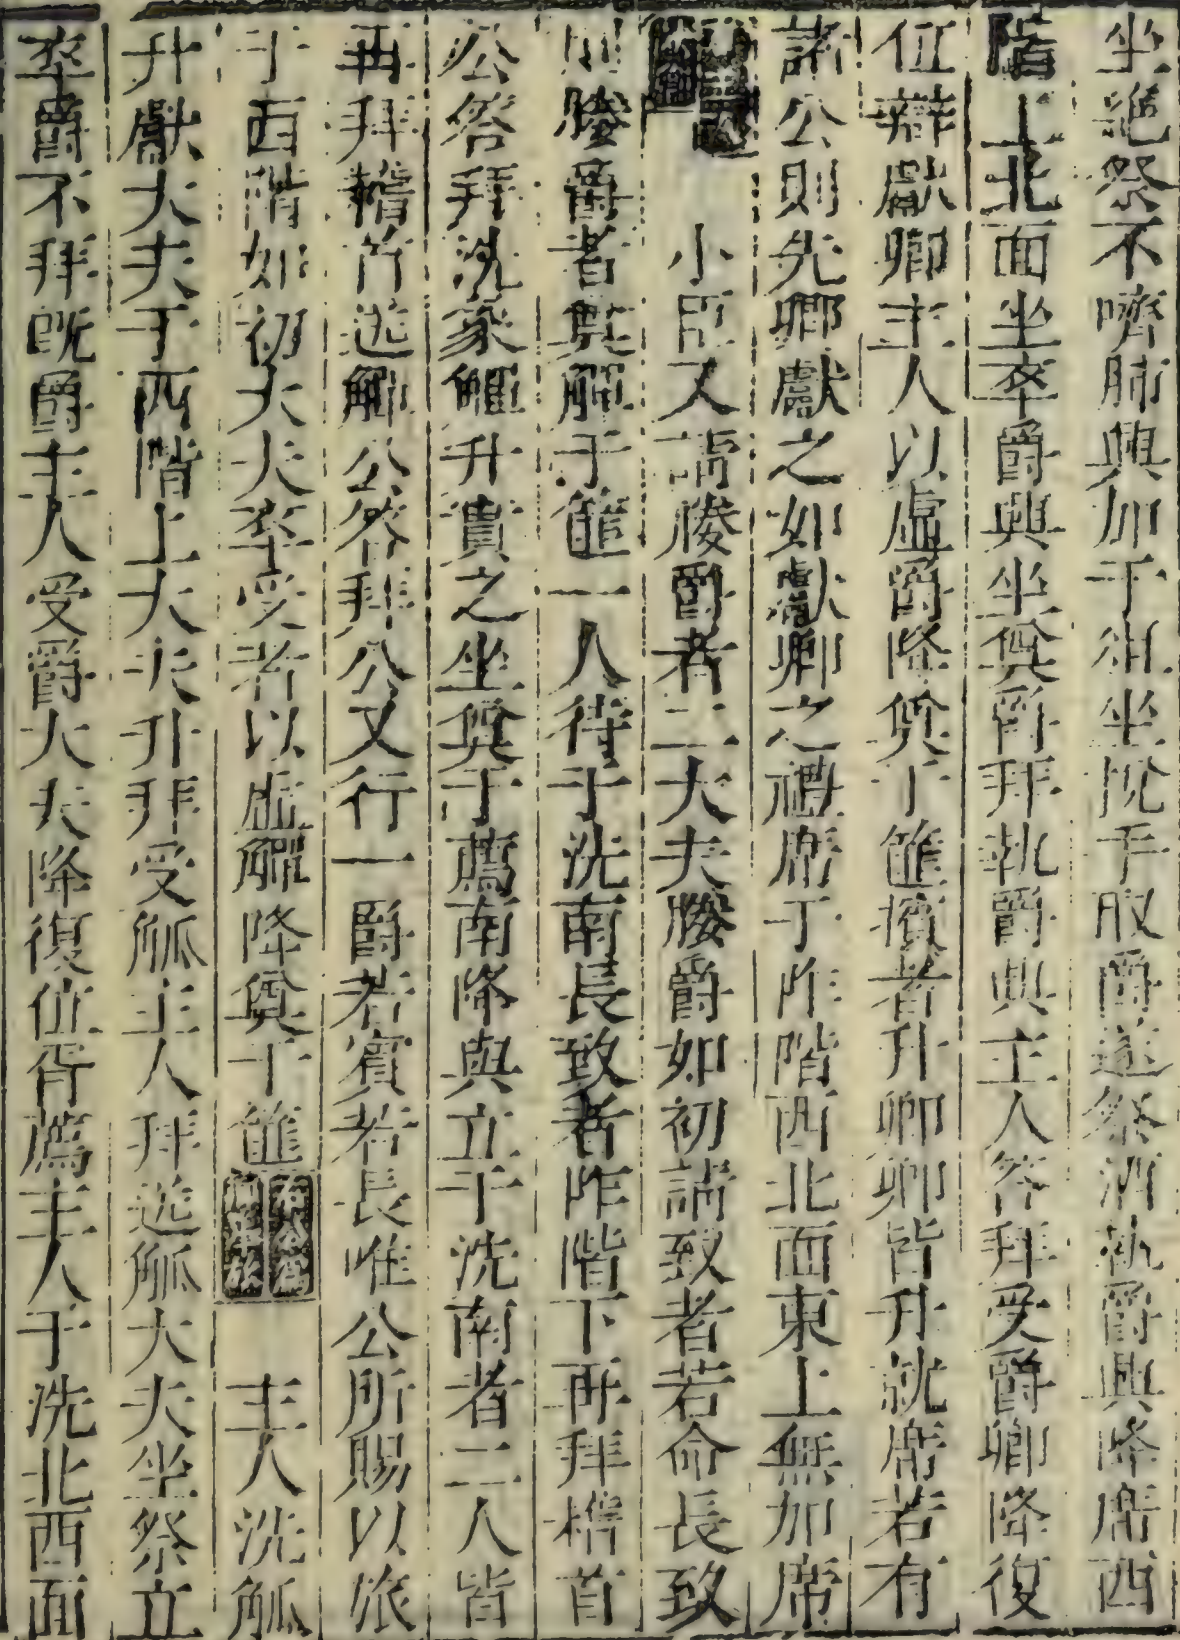 坐絕祭不嚌肺興加于俎坐挩手取爵遂祭酒執爵興降席西
階上北面坐卒爵興坐奠爵拜執爵興主人答拜受爵卿降復
位辯獻卿主人以虛爵降奠于篚擯者升卿卿皆升就席若有
諸公則先卿獻之如獻卿之禮席于阼階西北面東上無加席
小臣又請媵爵者二大夫媵爵如初請致者若命長致
則媵爵者奠觶于篚一人待于洗南長致者阼階下再拜稽首
公答拜洗象觶升實之坐奠于薦南降與立于洗南者二人皆
再拜稽首送觶公答拜公又行一爵若賓若長唯公所賜以旅
于西階如初大夫卒受者以虛觶降奠于篚 主人洗觚
升獻大夫于西階上大夫升拜受觚主人拜送觚大夫坐祭立
卒爵不拜既爵主人受爵大夫降復位胥薦主人于洗北西面